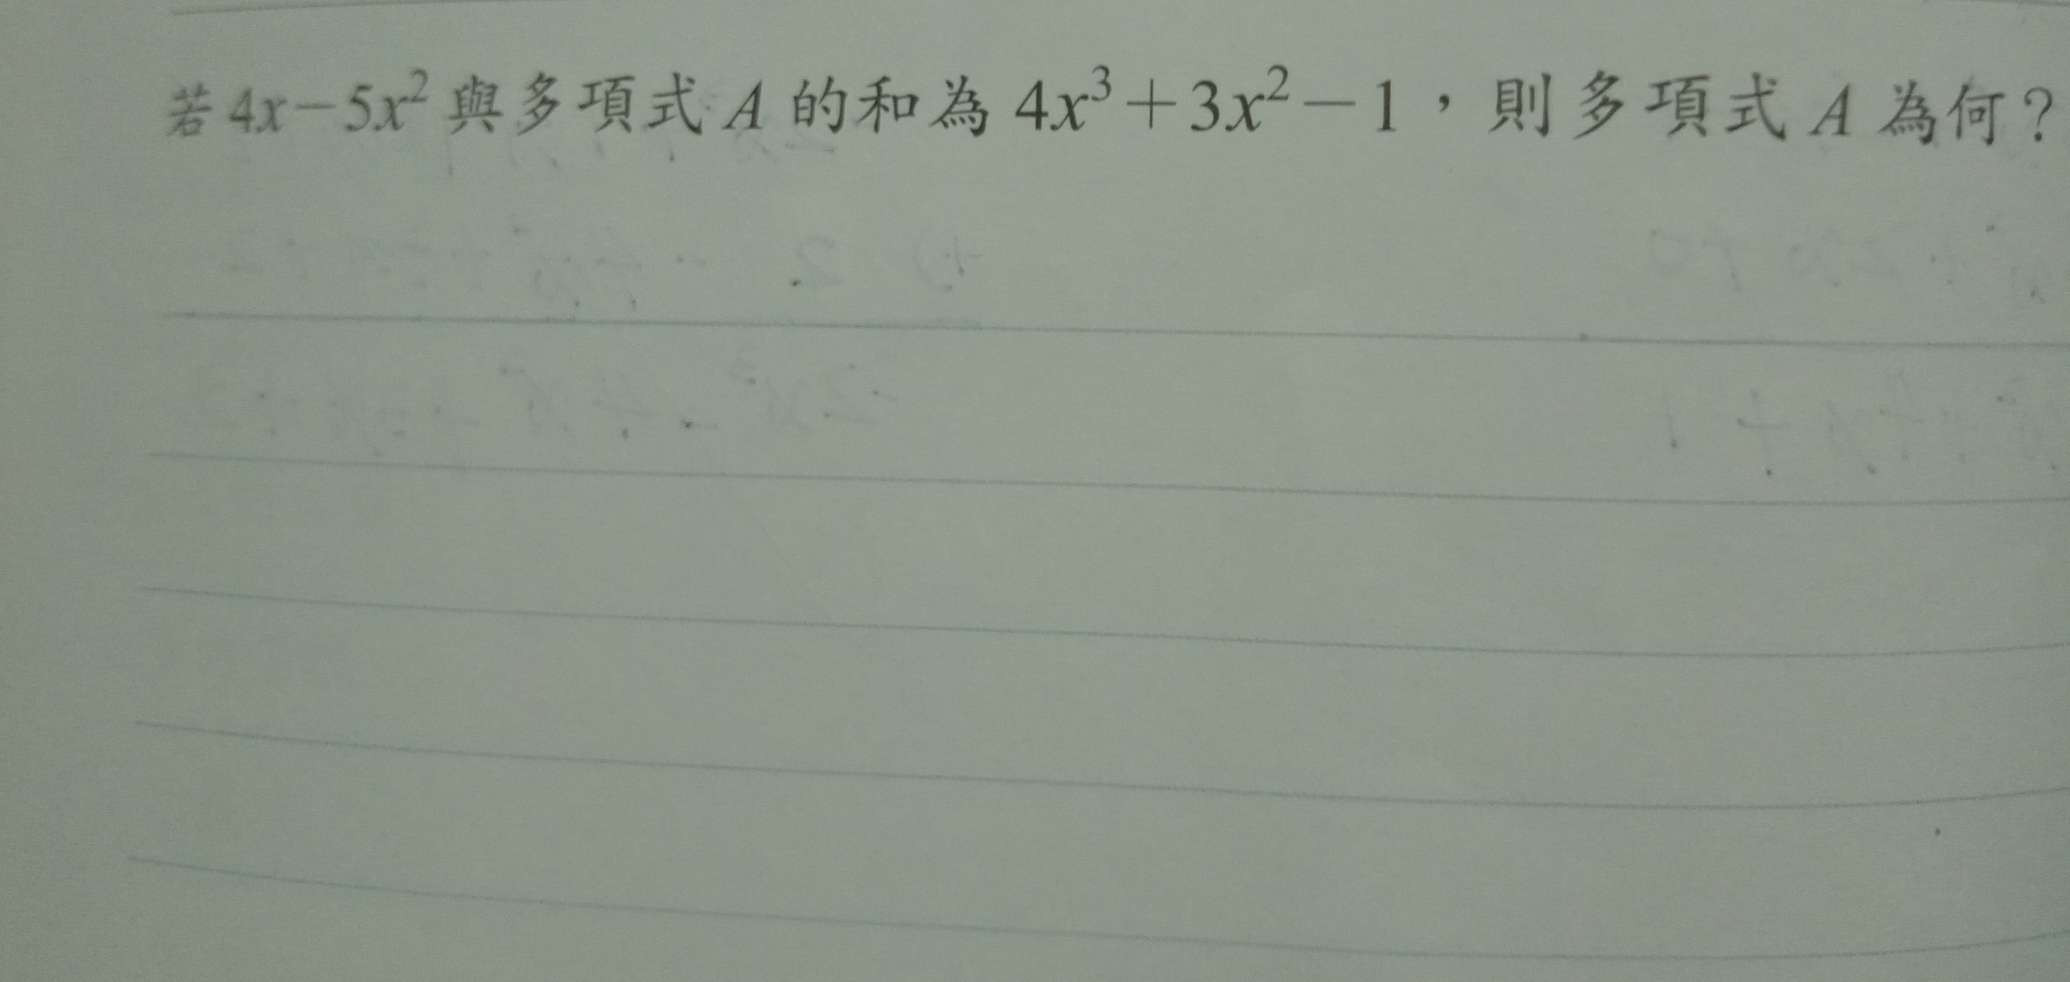 若 4x－5x² 與多項式 A 的和為 4x³＋3x²－1，則多項式 A 為何？